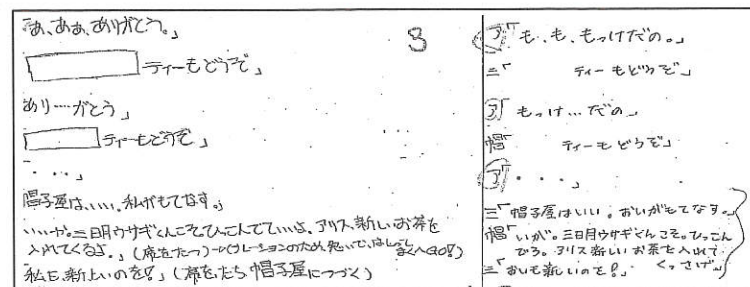 「あ、ああ、ありがとう。」
ティーもどうぞ」
あり……がとう」
ティーもどうぞ」
・・・」
帽子屋は、いい、私がもてなす。」
三日月ウサギくんこそひっこんでていいよ。アリス、新しいお茶を
入れてくるよ。」(席をたつ)
私も新しいのを!」(席をたち帽子屋につづく)
3
ア「も、も、もっけだの。」
三「ティーもどうぞ」
ア「もっけ…だの」
帽「ティーもどうぞ」
ア「・・・」
三「帽子屋はいい。おいがもてなす。」
帽「いが。三日月ウサギくんこそ。ひっこん
でろ。アリス新しいお茶を入れて
くっさげ」
三「おいも新しいのを!」